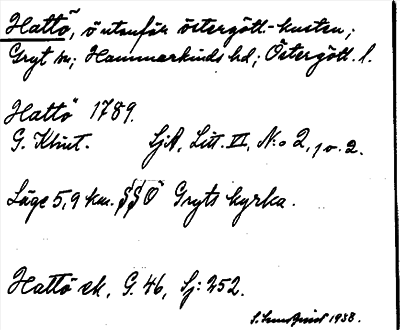 Hattö, ö utanför östergötl.-kusten;
Gryt sn; Hammarkinds hd; Östergötl. l.
Hattö 1789.
G. Klint. SjA, Litt. VI, N:o 2, 1 o. 2.
Läge 5,9 km. SSO Gryts kyrka.
Hattö ek, G. 46, Sj: 252.
S. Lundquist 1938.